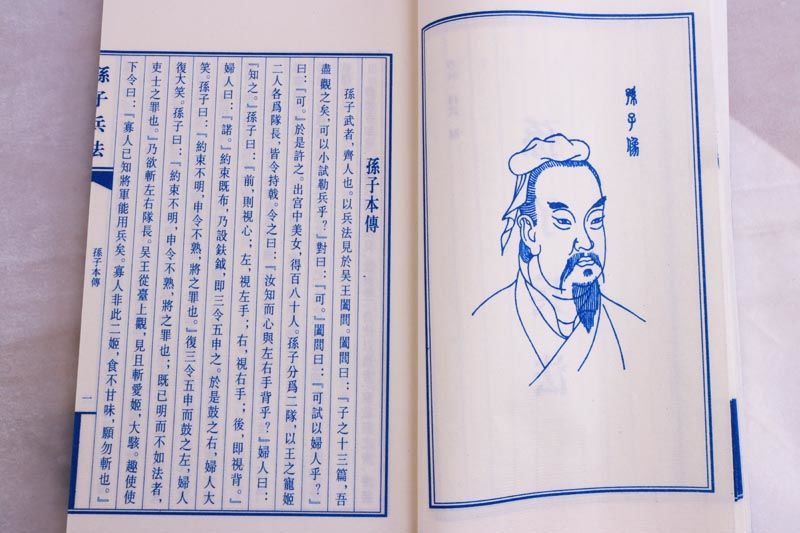 孫子像
孫子本傳
孫子武者，齊人也。以兵法見於吴王闔閭。闔閭曰：『子之十三篇，吾
盡觀之矣，可以小試勒兵乎？』對曰：『可。』闔閭曰：『可試以婦人乎？』
曰：『可。』於是許之。出宮中美女，得百八十人。孫子分爲二隊，以王之寵姬
二人各爲隊長，皆令持戟。令之曰：『汝知而心與左右手背乎？』婦人曰：
『知之。』孫子曰：『前，則視心；左，視左手；右，視右手；後，即視背。』
婦人曰：『諾。』約束既布，乃設鈇鉞，即三令五申之。於是鼓之右，婦人大
笑。孫子曰：『約束不明，申令不熟，將之罪也。』復三令五申而鼓之左，婦人
復大笑。孫子曰：『約束不明，申令不熟，將之罪也；既已明而不如法者，
吏士之罪也。』乃欲斬左右隊長。吴王從臺上觀，見且斬愛姬，大駭。趣使使
下令曰：『寡人已知將軍能用兵矣。寡人非此二姬，食不甘味，願勿斬也。』
孫子兵法
孫子本傳
一